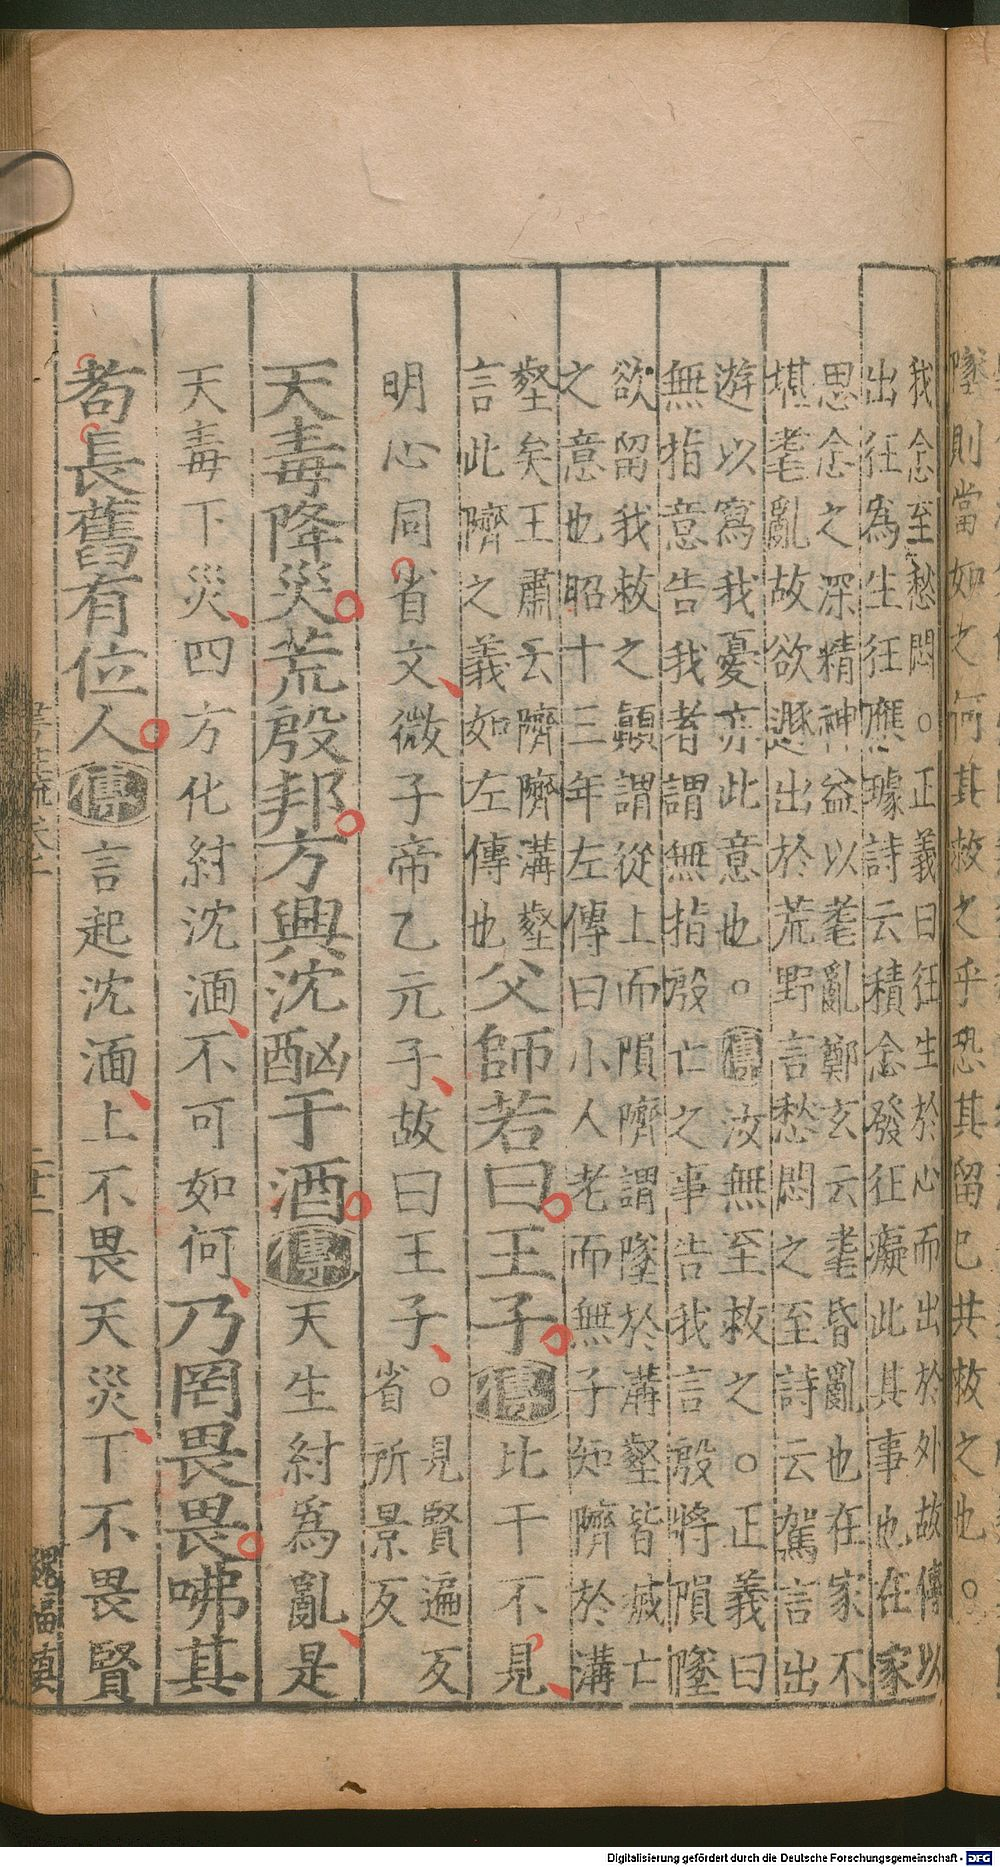 墜則當如之何其救之乎恐其留己共救之也○
我念至愁悶○正義曰狂生於心而出於外故傳以
出狂為生狂應璩詩云積念發狂癡此其事也在家
思念之深精神益以耄亂鄭玄云耄昏亂也在家不
堪耄亂故欲遯出於荒野言愁悶之至詩云駕言出
遊以寫我憂亦此意也○傳汝無至救之○正義曰
無指意告我者謂無指殷亡之事告我言殷將隕墜
欲留我救之顚謂從上而隕隮謂墜於溝壑皆滅亡
之意也昭十三年左傳曰小人老而無子知隮於溝
壑矣王肅云隮隮溝壑
言此隮之義如左傳也父師若曰王子傳比干不見
明心同省文微子帝乙元子故曰王子○見賢遍反
省所景反
天毒降災荒殷邦方興沈酗于酒傳天生紂爲亂是
天毒下災四方化紂沈湎不可如何乃罔畏畏咈其
耇長舊有位人傳言起沈湎上不畏天災下不畏賢
Digitalisierung gefördert durch die Deutsche Forschungsgemeinschaft - DFG